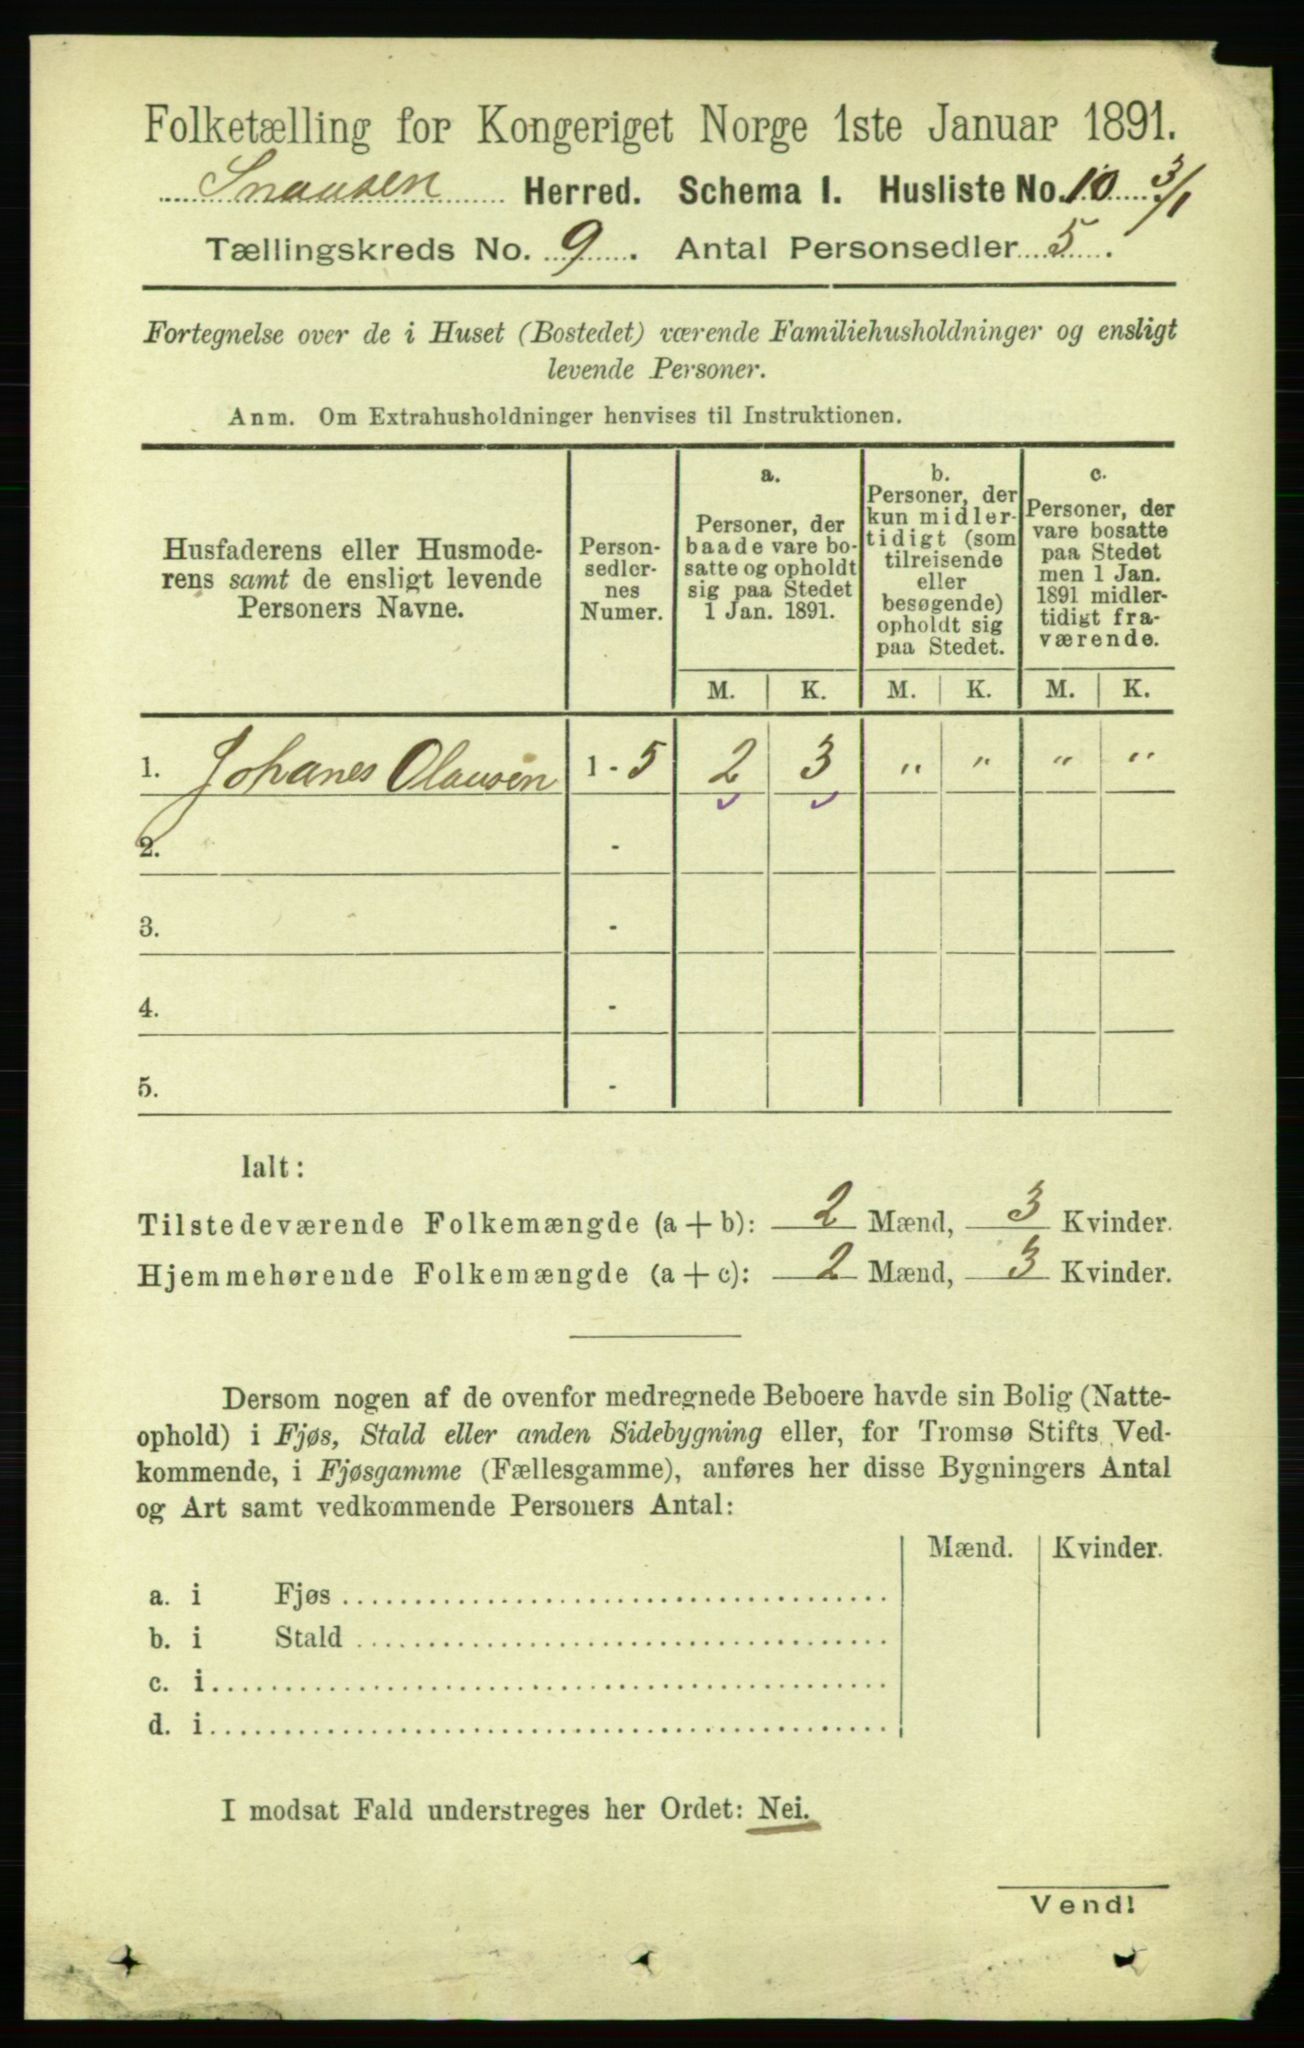 Folketælling for Kongeriget Norge 1ste Januar 1891.
Snausen Herred. Schema I. Husliste No. 10 3/1
Tællingskreds No. 9. Antal Personsedler 5.
Fortegnelse over de i Huset (Bostedet) værende Familiehusholdninger og ensligt
levende Personer.
Anm. Om Extrahusholdninger henvises til Instruktionen.
Husfaderens eller Husmode-
rens samt de ensligt levende
Personers Navne.
Person-
sedler-
nes
Numer.
a.
Personer, der
baade vare bo-
satte og opholdt
sig paa Stedet
1 Jan. 1891.
b.
Personer, der
kun midler-
tidigt (som
tilreisende
eller
besøgende)
opholdt sig
paa Stedet.
c.
Personer, der
vare bosatte
paa Stedet
men 1 Jan.
1891 midler-
tidigt fra-
værende.
M. K. M. K. M. K.
1. Johanes Olausen 1 - 5 2 3 " " " "
2. -
3. -
4. -
5. -
Ialt:
Tilstedeværende Folkemængde (a + b): 2 Mænd, 3 Kvinder.
Hjemmehørende Folkemængde (a + c): 2 Mænd, 3 Kvinder.
Dersom nogen af de ovenfor medregnede Beboere havde sin Bolig (Natte-
ophold) i Fjøs, Stald eller anden Sidebygning eller, for Tromsø Stifts Ved-
kommende, i Fjøsgamme (Fællesgamme), anføres her disse Bygningers Antal
og Art samt vedkommende Personers Antal:
Mænd. Kvinder.
a. i Fjøs
b. i Stald
c. i
d. i
I modsat Fald understreges her Ordet: Nei.
Vend!